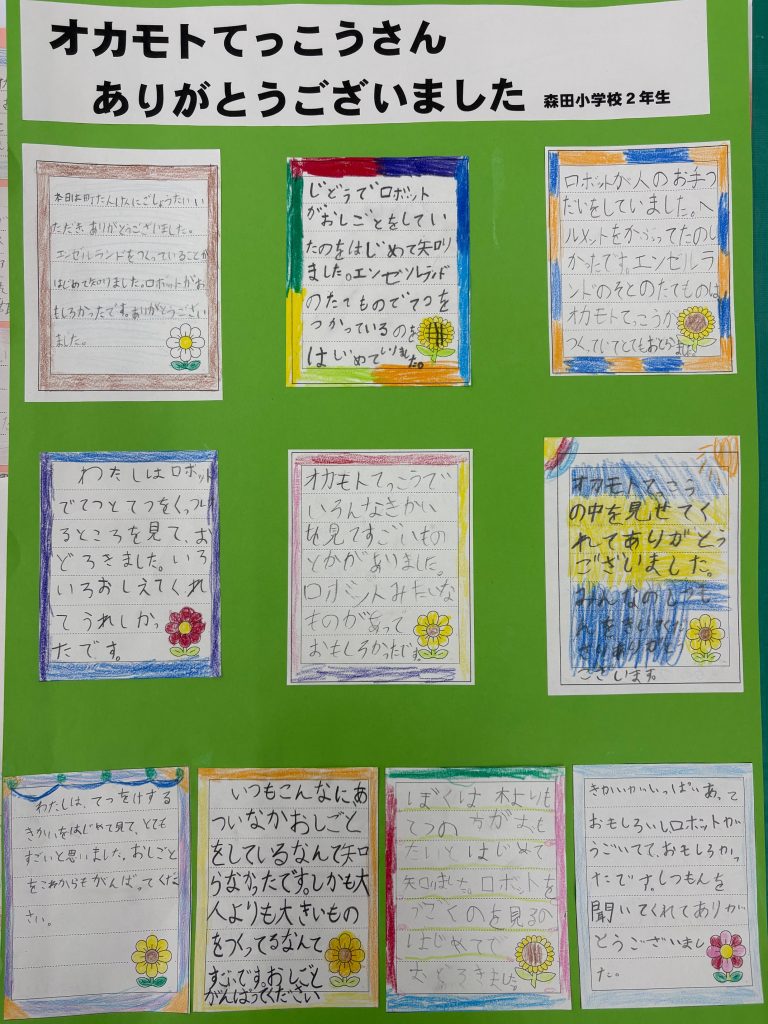 オカモトてっこうさん
ありがとうございました
森田小学校2年生
本日は町たんけんにごしょうたいい
ただき ありがとうございました。
エンゼルランドをつくっていることが
はじめて知りました。ロボットがお
もしろかったです。ありがとうござい
ました。
じどうでロボット
がおしごとをしてい
たのをはじめて知り
ました。エンゼルランド
のたてものでてつを
つかっているのを
はじめて
ロボットが人のお手つ
だいをしていました。ヘ
ルメットをかぶってたのし
かったです。エンゼルラ
ンドのそとのたてものは
オカモトてっこうが
つくっていてとても
わたしはロボット
でてつとてつをくっつけ
るところを見て、お
どろきました。いろ
いろおしえてくれ
てうれしかっ
たです。
オカモトてっこうで
いろんなきかい
を見てすごいもの
とかがありました。
ロボットみたいな
ものがあって
おもしろかったです。
オカモトてっこう
の中を見せてく
れてありがとう
ございました。
みんなのしつも
んをきいてくだ
さりありがとう
ございます。
わたしは、てつをけずる
きかいをはじめて見て、とても
すごいと思いました。おしごと
をこれからもがんばってくだ
さい。
いつもこんなにあ
ついなかおしごと
をしているなんて知
らなかったです。しかも大
人よりも大きいもの
をつくってるなんて
すごいです。おしごと
がんばってください
ぼくは 木よりも
てつの 方がおも
たいと はじめて
知りました。ロボットを
うごくのを見るの
はじめてで
おどろきました。
きかいがいっぱいあって
おもしろいしロボットが
うごいてて、おもしろかっ
たです。しつもんを
聞いてくれてありが
とうございまし
た。